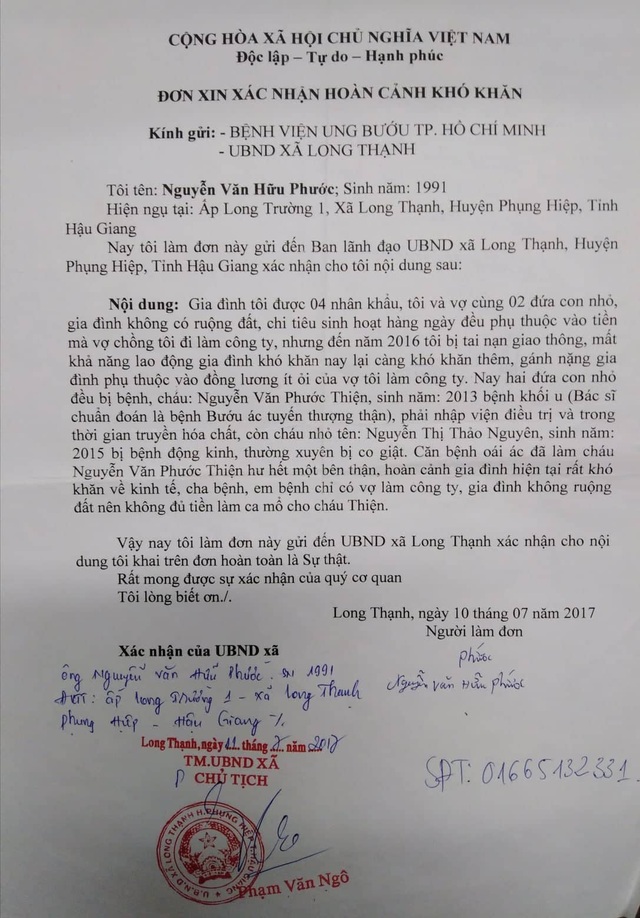 CỘNG HÒA XÃ HỘI CHỦ NGHĨA VIỆT NAM
Độc lập – Tự do – Hạnh phúc
ĐƠN XIN XÁC NHẬN HOÀN CẢNH KHÓ KHĂN
Kính gửi: - BỆNH VIỆN UNG BƯỚU TP. HỒ CHÍ MINH
- UBND XÃ LONG THẠNH
Tôi tên: Nguyễn Văn Hữu Phước; Sinh năm: 1991
Hiện ngụ tại: Ấp Long Trường 1, Xã Long Thạnh, Huyện Phụng Hiệp, Tỉnh
Hậu Giang
Nay tôi làm đơn này gửi đến Ban lãnh đạo UBND xã Long Thạnh, Huyện
Phụng Hiệp, Tỉnh Hậu Giang xác nhận cho tôi nội dung sau:
Nội dung: Gia đình tôi được 04 nhân khẩu, tôi và vợ cùng 02 đứa con nhỏ,
gia đình không có ruộng đất, chi tiêu sinh hoạt hàng ngày đều phụ thuộc vào tiền
mà vợ chồng tôi đi làm công ty, nhưng đến năm 2016 tôi bị tai nạn giao thông, mất
khả năng lao động gia đình khó khăn nay lại càng khó khăn thêm, gánh nặng gia
đình phụ thuộc vào đồng lương ít ỏi của vợ tôi làm công ty. Nay hai đứa con nhỏ
đều bị bệnh, cháu: Nguyễn Văn Phước Thiện, sinh năm: 2013 bệnh khối u (Bác sĩ
chuẩn đoán là bệnh Bướu ác tuyến thượng thận), phải nhập viện điều trị và trong
thời gian truyền hóa chất, còn cháu nhỏ tên: Nguyễn Thị Thảo Nguyên, sinh năm:
2015 bị bệnh động kinh, thường xuyên bị co giật. Căn bệnh oái ác đã làm cháu
Nguyễn Văn Phước Thiện hư hết một bên thận, hoàn cảnh gia đình hiện tại rất khó
khăn về kinh tế, cha bệnh, em bệnh chỉ có vợ làm công ty, gia đình không ruộng
đất nên không đủ tiền làm ca mổ cho cháu Thiện.
Vậy nay tôi làm đơn này gửi đến UBND xã Long Thạnh xác nhận cho nội
dung tôi khai trên đơn hoàn toàn là Sự thật.
Rất mong được sự xác nhận của quý cơ quan
Tôi lòng biết ơn./.
Long Thạnh, ngày 10 tháng 07 năm 2017
Người làm đơn
Xác nhận của UBND xã
Phước
Nguyễn Văn Hữu Phước
Ông Nguyễn Văn Hữu Phước. SN 1991
ấp Long Trường 1 - xã Long Thạnh
Phụng Hiệp - Hậu Giang ./.
Long Thạnh, ngày 11 tháng 7 năm 2017
TM.UBND XÃ
P CHỦ TỊCH
SĐT: 01665132331.
U.B.N.D XÃ LONG THẠNH H.PHỤNG HIỆP T.HẬU GIANG
Phạm Văn Ngô